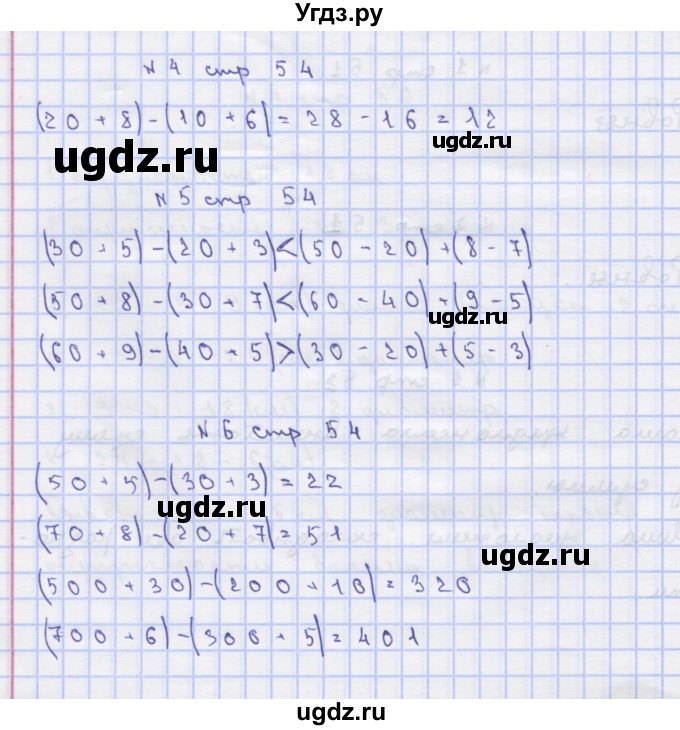 Угдз.ру
N 4 стр 54
(20 + 8) - (10 + 6) = 28 - 16 = 12
ugdz.ru
ugdz.ru
N 5 стр 54
(30 + 5) - (20 + 3) < (50 - 20) + (8 - 7)
(50 + 8) - (30 + 7) < (60 - 40) + (9 - 5)
ugdz.ru
(60 + 9) - (40 + 5) > (30 - 20) + (5 - 3)
N 6 стр 54
(50 + 5) - (30 + 3) = 22
ugdz.ru
(70 + 8) - (20 + 7) = 51
ugdz.ru
(500 + 30) - (200 + 10) = 320
(700 + 6) - (300 + 5) = 401
ugdz.ru